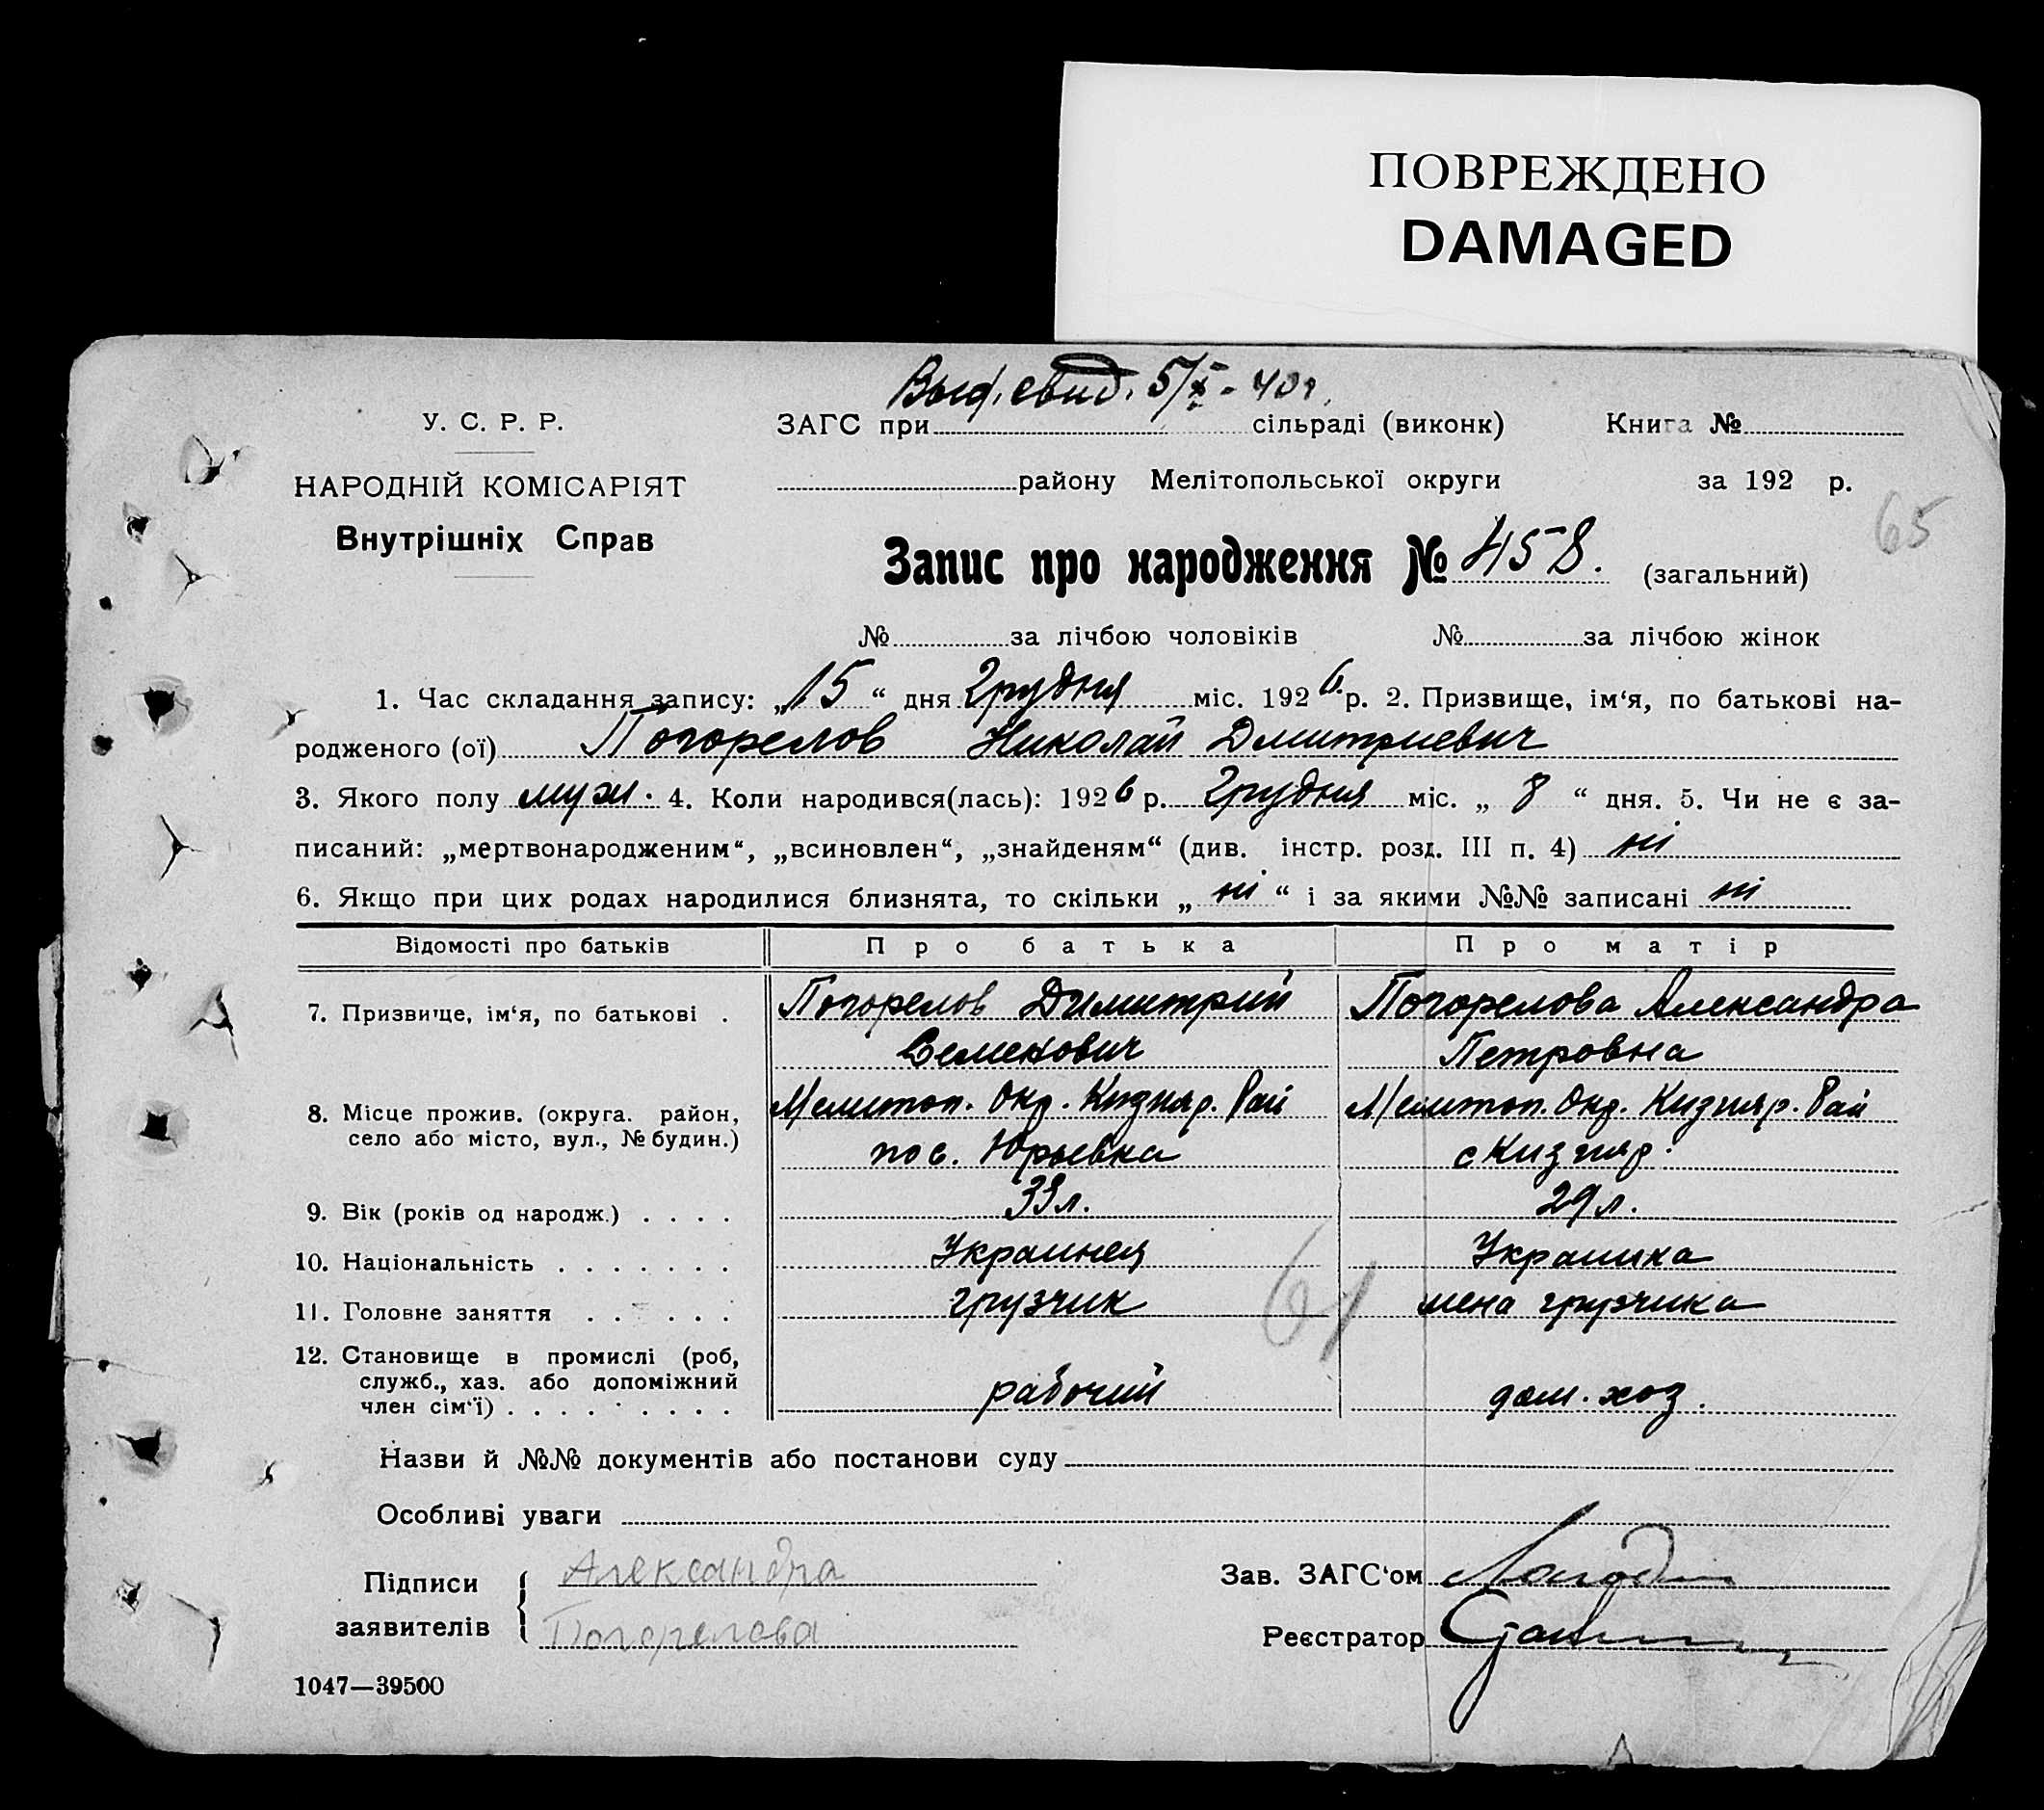 ПОВРЕЖДЕНО
DAMAGED
Выд. свид. 5/X - 40 г.
У. С. Р. Р.
ЗАГС при сільраді (виконк) Книга №
НАРОДНІЙ КОМІСАРІЯТ
району Мелітопольської округи за 192 р.
Внутрішніх Справ
65
Запис про народження № 458. (загальний)
№ за лічбою чоловіків № за лічбою жінок
1. Час складання запису: „15“ дня Грудня міс. 1926 р. 2. Призвище, ім‘я, по батькові на-
родженого (ої) Погорелов Николай Дмитриевич
3. Якого полу муж. 4. Коли народився(лась): 1926 р. Грудня міс. „ 8 “ дня. 5. Чи не є за-
писаний: „мертвонародженим“, „всиновлен“, „знайденям“ (див. інстр. розд. III п. 4) ні
6. Якщо при цих родах народилися близнята, то скільки „ ні “ і за якими №№ записані ні
Відомості про батьків Про батька Про матір
7. Призвище, ім‘я, по батькові . Погорелов Димитрий Погорелова Александра
Семенович Петровна
8. Місце прожив. (округа. район, Мелитоп. Окр. Кизияр. Рай Мелитоп. Окр. Кизияр. Рай
село або місто, вул., № будин.) пос. Юрьевка с Кизияр.
9. Вік (років од народж.) . . . . 33 л. 29 л.
10. Національність . . . . . . . Украинец Украинка
11. Головне заняття . . . . . . грузчик жена грузчика
61
12. Становище в промислі (роб,
служб., хаз. або допоміжний
член сім‘ї) . . . . . . . . . рабочий дом. хоз.
Назви й №№ документів або постанови суду
Особливі уваги
Підписи Александра Зав. ЗАГС‘ом
заявителів Погорелова Реєстратор
1047—39500